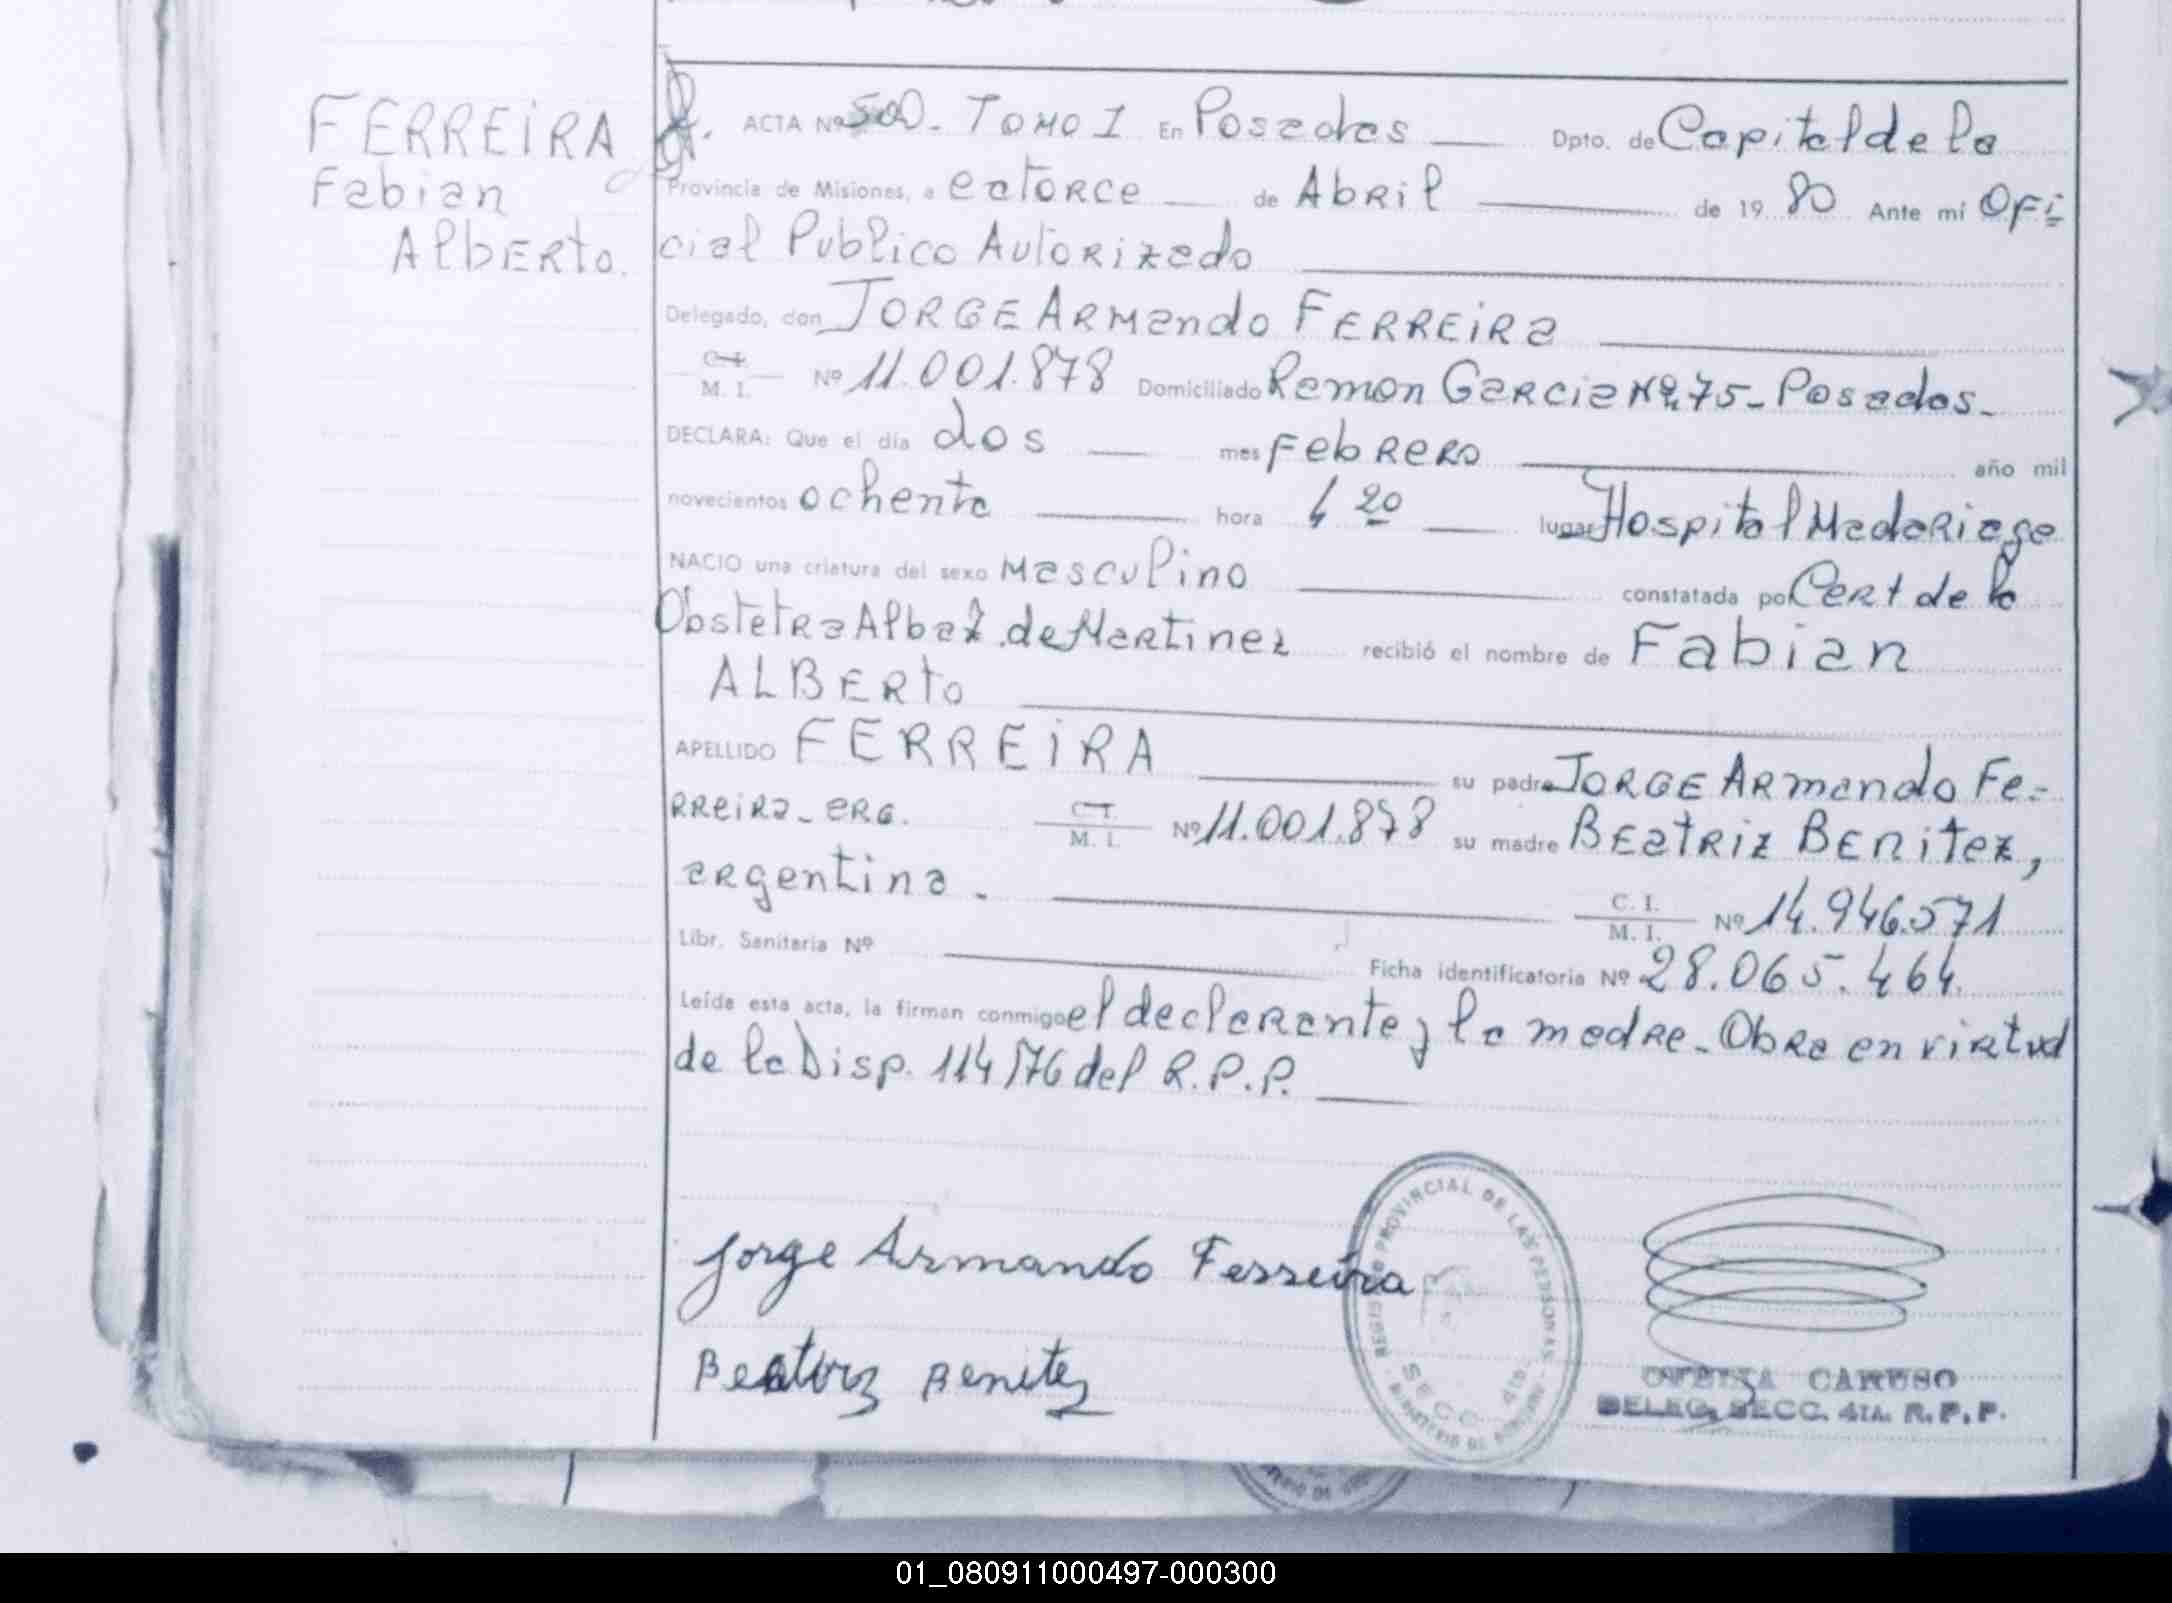 FERREIRA
Fabian
Alberto.
ACTA Nº 500. Tomo I En Posadas Dpto. de Capital de la
Provincia de Misiones, a catorce de Abril de 19 80 Ante mí Ofi
cial Publico Autorizado
Delegado, don Jorge Armando Ferreira
C. I.
M. I. Nº 11.001.878 Domiciliado Ramon Garcia Nº 75 - Posadas.
DECLARA: Que el día dos mes Febrero año mil
novecientos ochenta hora 4 20 lugar Hospital Madariaga
NACIO una criatura del sexo Masculino constatada por Cert de la
Obstetra Alba Z. de Martinez recibió el nombre de Fabian
ALBERTO
APELLIDO FERREIRA su padre Jorge Armando Fe-
rreira - arg. C. I.
M. I. Nº 11.001.878 su madre Beatriz Benitez,
argentina. C. I.
M. I. Nº 14.946.571
Libr. Sanitaria Nº Ficha identificatoria Nº 28.065.464
Leída esta acta, la firman conmigo el declarante y la madre - Obra en virtud
de la Disp. 114/76 del R.P.P.
REGISTRO PROVINCIAL DE LAS PERSONAS
SECC. 4ta.
Jorge Armando Ferreira
Beatriz Benitez
CARUSO
DELEG. SECC. 4TA. R.P.P.
01_080911000497-000300